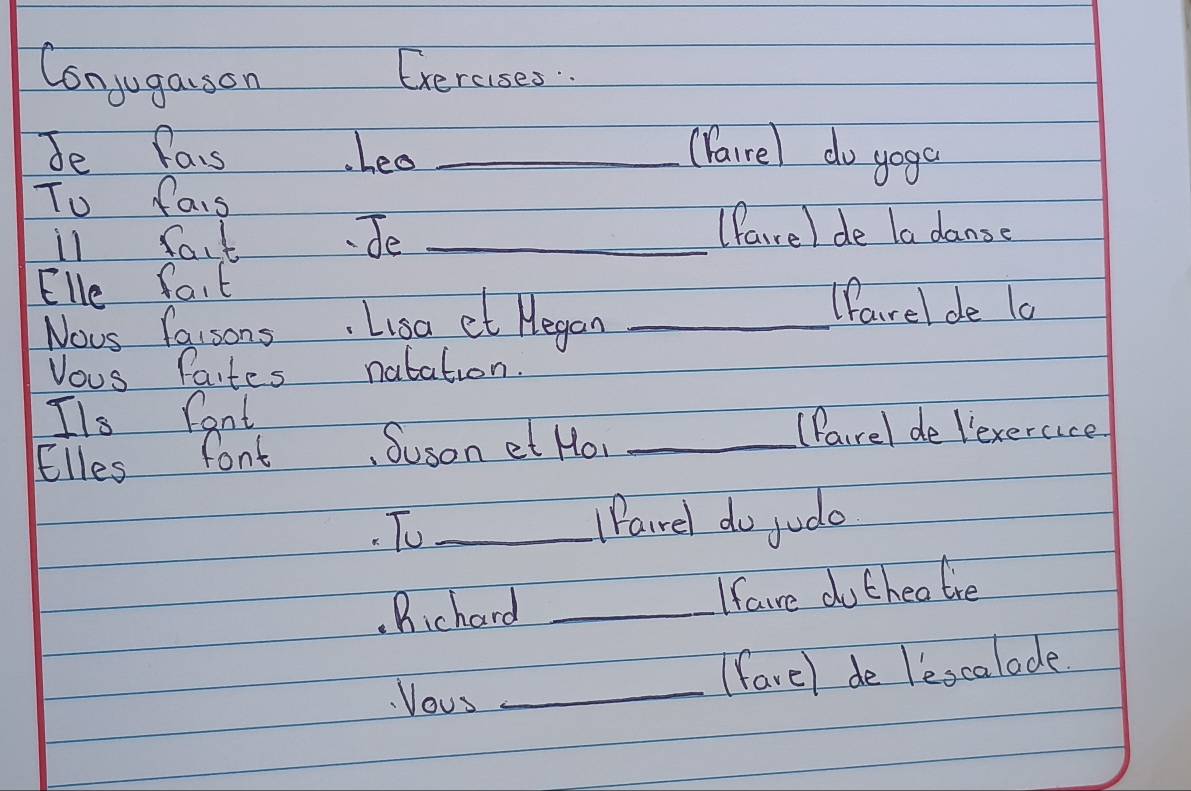 Conjugaison Exercises:.
Je fais .Leo ____ (faire) du yoga
Tu fais
il fait .Je ____ (faire) de la danse
Elle fait
Nous faisons .Lisa et Megan ____ (faire) de la
Vous faites natation.
Ils font
Elles font .Suson et Moi ____ (faire) de l'exercice
.Tu ____ (faire) du judo.
.Richard ____ (faire du theatre
.Vous ____ (faire) de l'escalade.